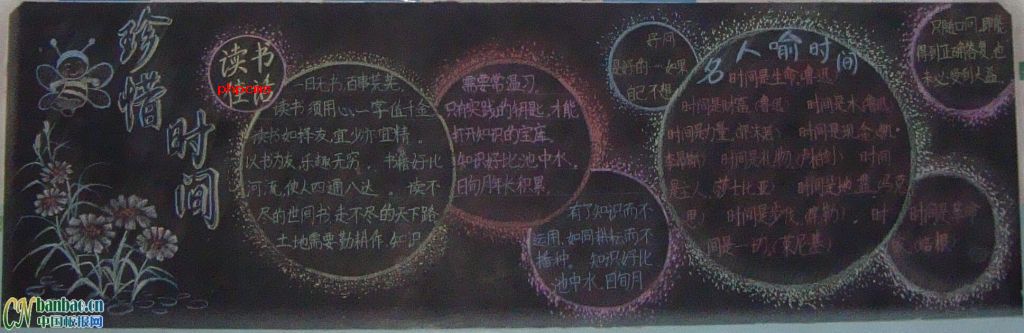 珍惜
时间
读书
生活
phpcms
一日无书,百事荒芜。
读书须用心,一字值千金
读书如择友,宜少亦宜精。
以书为友,乐趣无穷。书籍好比
河流,使人四通八达。读不
尽的世间书,走不尽的天下路
土地需要勤耕作,知识
需要常温习。
只有实践的钥匙,才能
打开知识的宝库
知识好比池中水,
日旬月年长积累。
有了知识而不
运用,如同耕耘而不
播种。知识好比
池中水,日旬月
好问
是好的
自己不想
名人喻时间
时间是生命(鲁迅)
时间是财富 时间是水
时间是力量 时间是现金
时间是礼物 时间
是主人(莎士比亚) 时间是地盘(马克
思) 时间是步伐 时
间是一切
只随口问,即能
得到正确答复,也
未必受到大益
时间是革命
CN banbao.cn
中国板报网